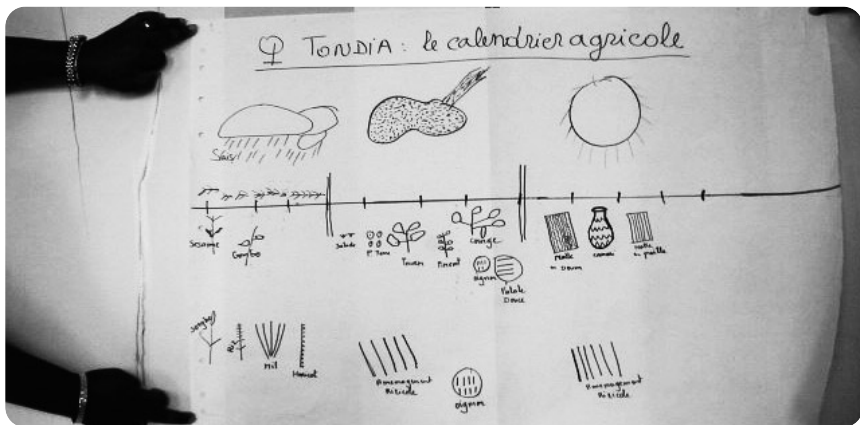 ♀ TONDIA : le calendrier agricole
Sésame
Gombo
Salade
P. Terre
Piment
Courge
oignon
Patate
Douce
Natte
Canari
Natte
en paille
Sorgho
Riz
Mil
Haricot
Amenagement
Rizicole
oignon
Amenagement
Rizicole